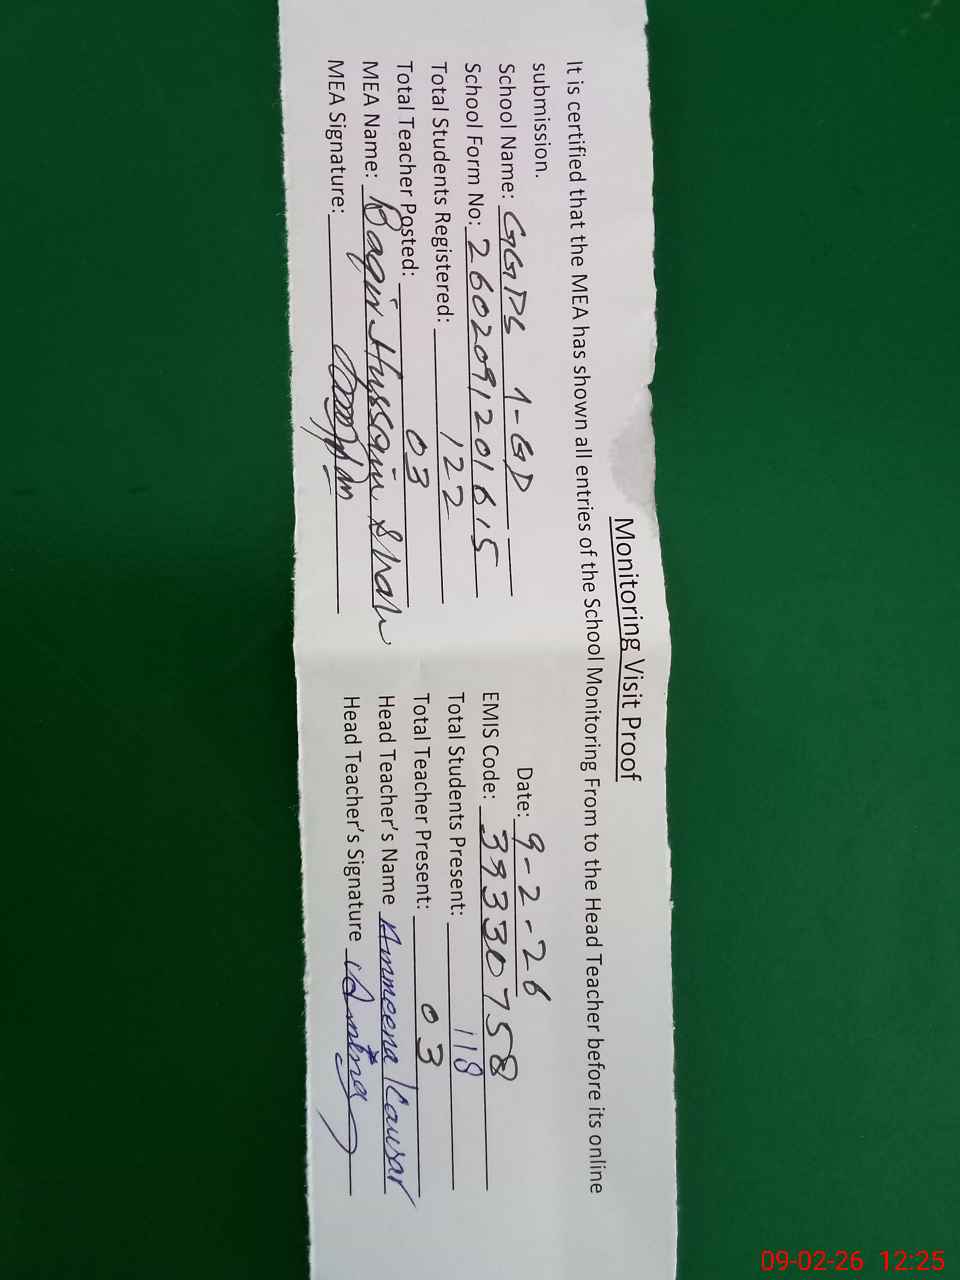 Monitoring Visit Proof
It is certified that the MEA has shown all entries of the School Monitoring From to the Head Teacher before its online
submission.
Date: 9-2-26
School Name: GGPS 1-GD
EMIS Code: 39330758
School Form No: 260209120161 5
Total Students Registered: 122
Total Students Present: 118
Total Teacher Posted: 03
Total Teacher Present: 03
MEA Name: Baqir Hussain Shah
Head Teacher's Name Ammeena Kausar
MEA Signature:
Head Teacher's Signature
09-02-26 12:25